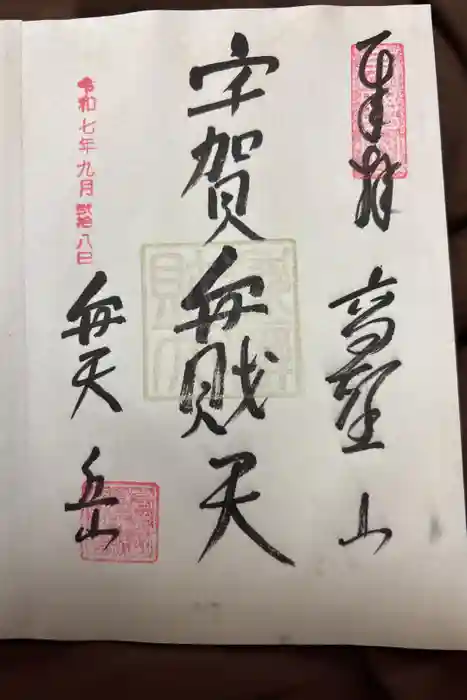 奉拝
高野山
宇賀弁財天
弁天岳
令和七年九月弐拾八日